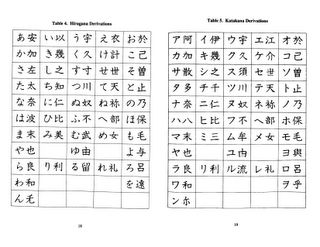 Table 4. Hiragana Derivations
あ安 い以 う宇 え衣 お於
か加 き幾 く久 け計 こ己
さ左 し之 す寸 せ世 そ曽
た太 ち知 つ川 て天 と止
な奈 に仁 ぬ奴 ね祢 の乃
は波 ひ比 ふ不 へ部 ほ保
ま末 み美 む武 め女 も毛
や也 ゆ由 よ与
ら良 り利 る留 れ礼 ろ呂
わ和 を遠
ん毛
Table 5. Katakana Derivations
ア阿 イ伊 ウ宇 エ江 オ於
カ加 キ幾 ク久 ケ介 コ己
サ散 シ之 ス須 セ世 ソ曽
タ多 チ千 ツ川 テ天 ト止
ナ奈 ニ仁 ヌ奴 ネ祢 ノ乃
ハ八 ヒ比 フ不 ヘ部 ホ保
マ末 ミ三 ム牟 メ女 モ毛
ヤ也 ユ由 ヨ與
ラ良 リ利 ル流 レ礼 ロ呂
ワ和 ヲ乎
ン尓